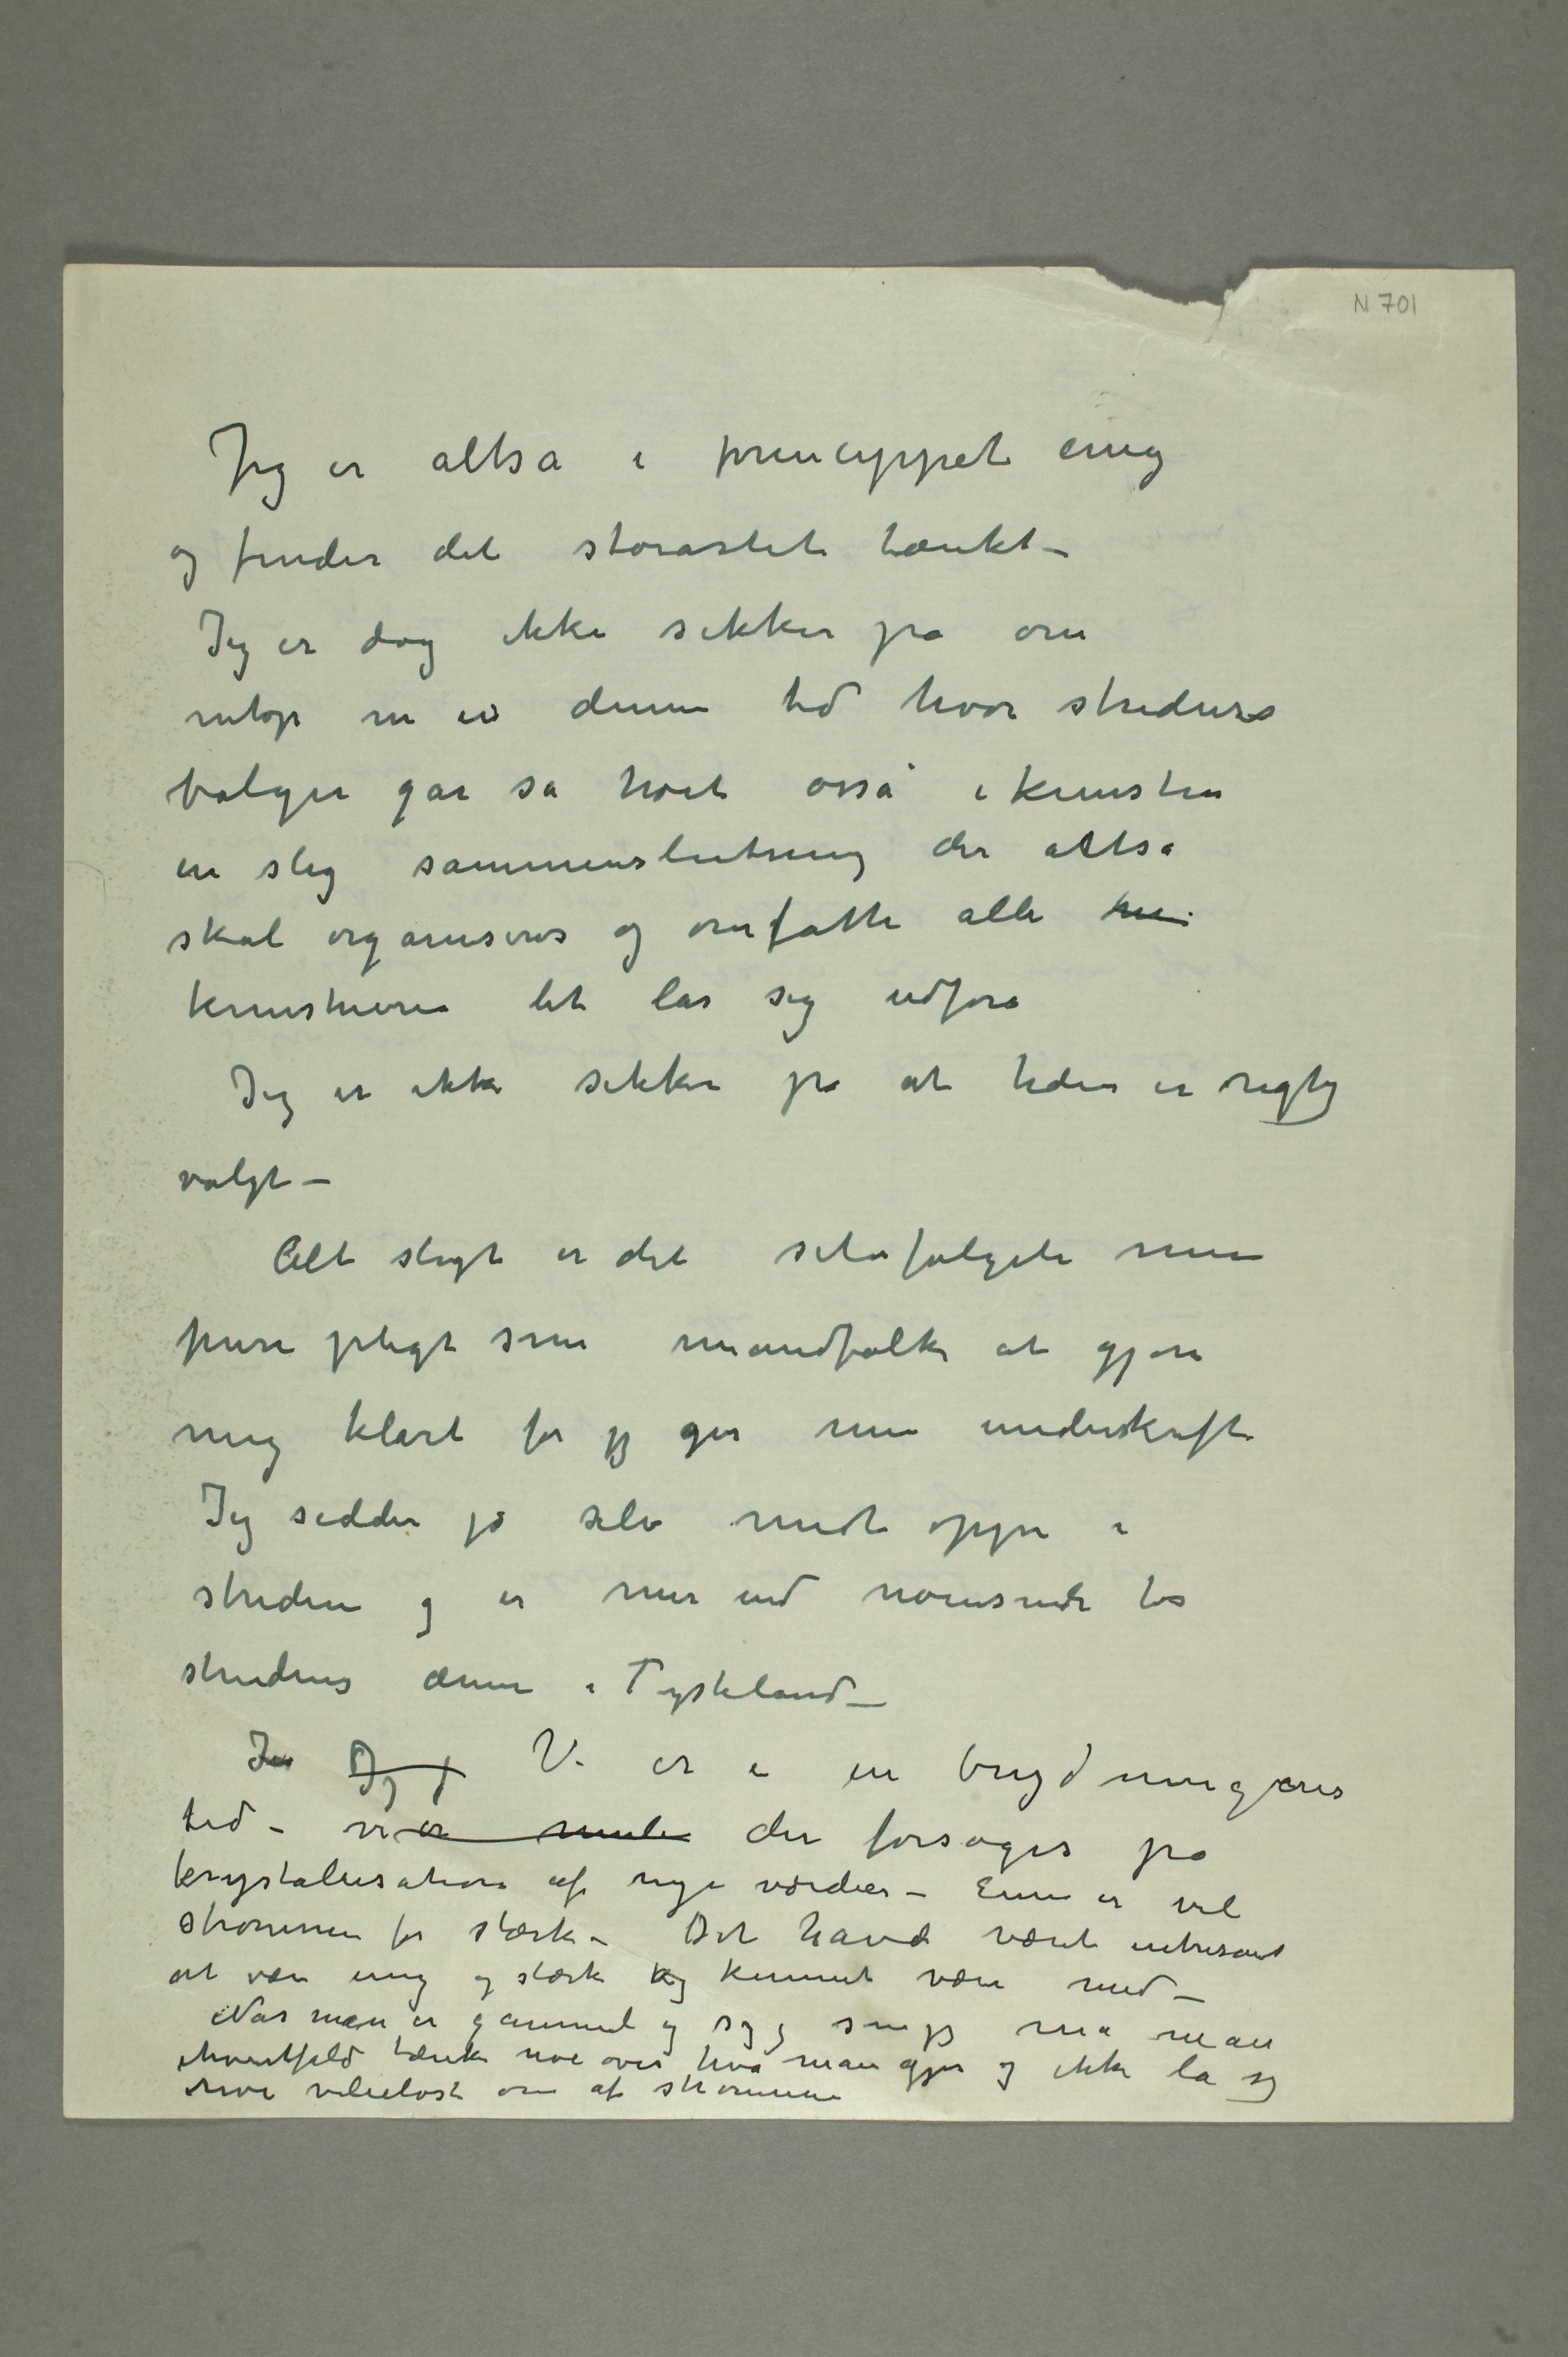 N 701
Jeg er altså i princippet enig
og finder det storartet tænkt –
Jeg er dog ikke sikker på om
netop nu i denne tid hvor stridens
bølger går så høit osså i kunsten
en slig sammenslutning der altså
skal organiseres og omfatte alle
kunstnere let lar sig udføre
Jeg er ikke sikker på at tiden er rigtig
valgt –
Alt sligt er det selvfølgelig min
pure pligt som mandfolk at gjøre
mig klart før jeg gir min underskrift
Jeg sidder jo selv midt oppe i
striden og er mer end noensinde
stridens æmne i Tyskland –
Jeg Vi er i en brydningens
tid – vi er der forsøges på
krystallisation af nye værdier – Ennu er vel
strømmen for stærk – Det havde været intresant
at være ung og stærk og kunnet være med –
Når man er gammel og syg som jeg må man
ihvertfald tænke noe over hva man gjør og ikke la sig
rive vilieløst om af strømmen